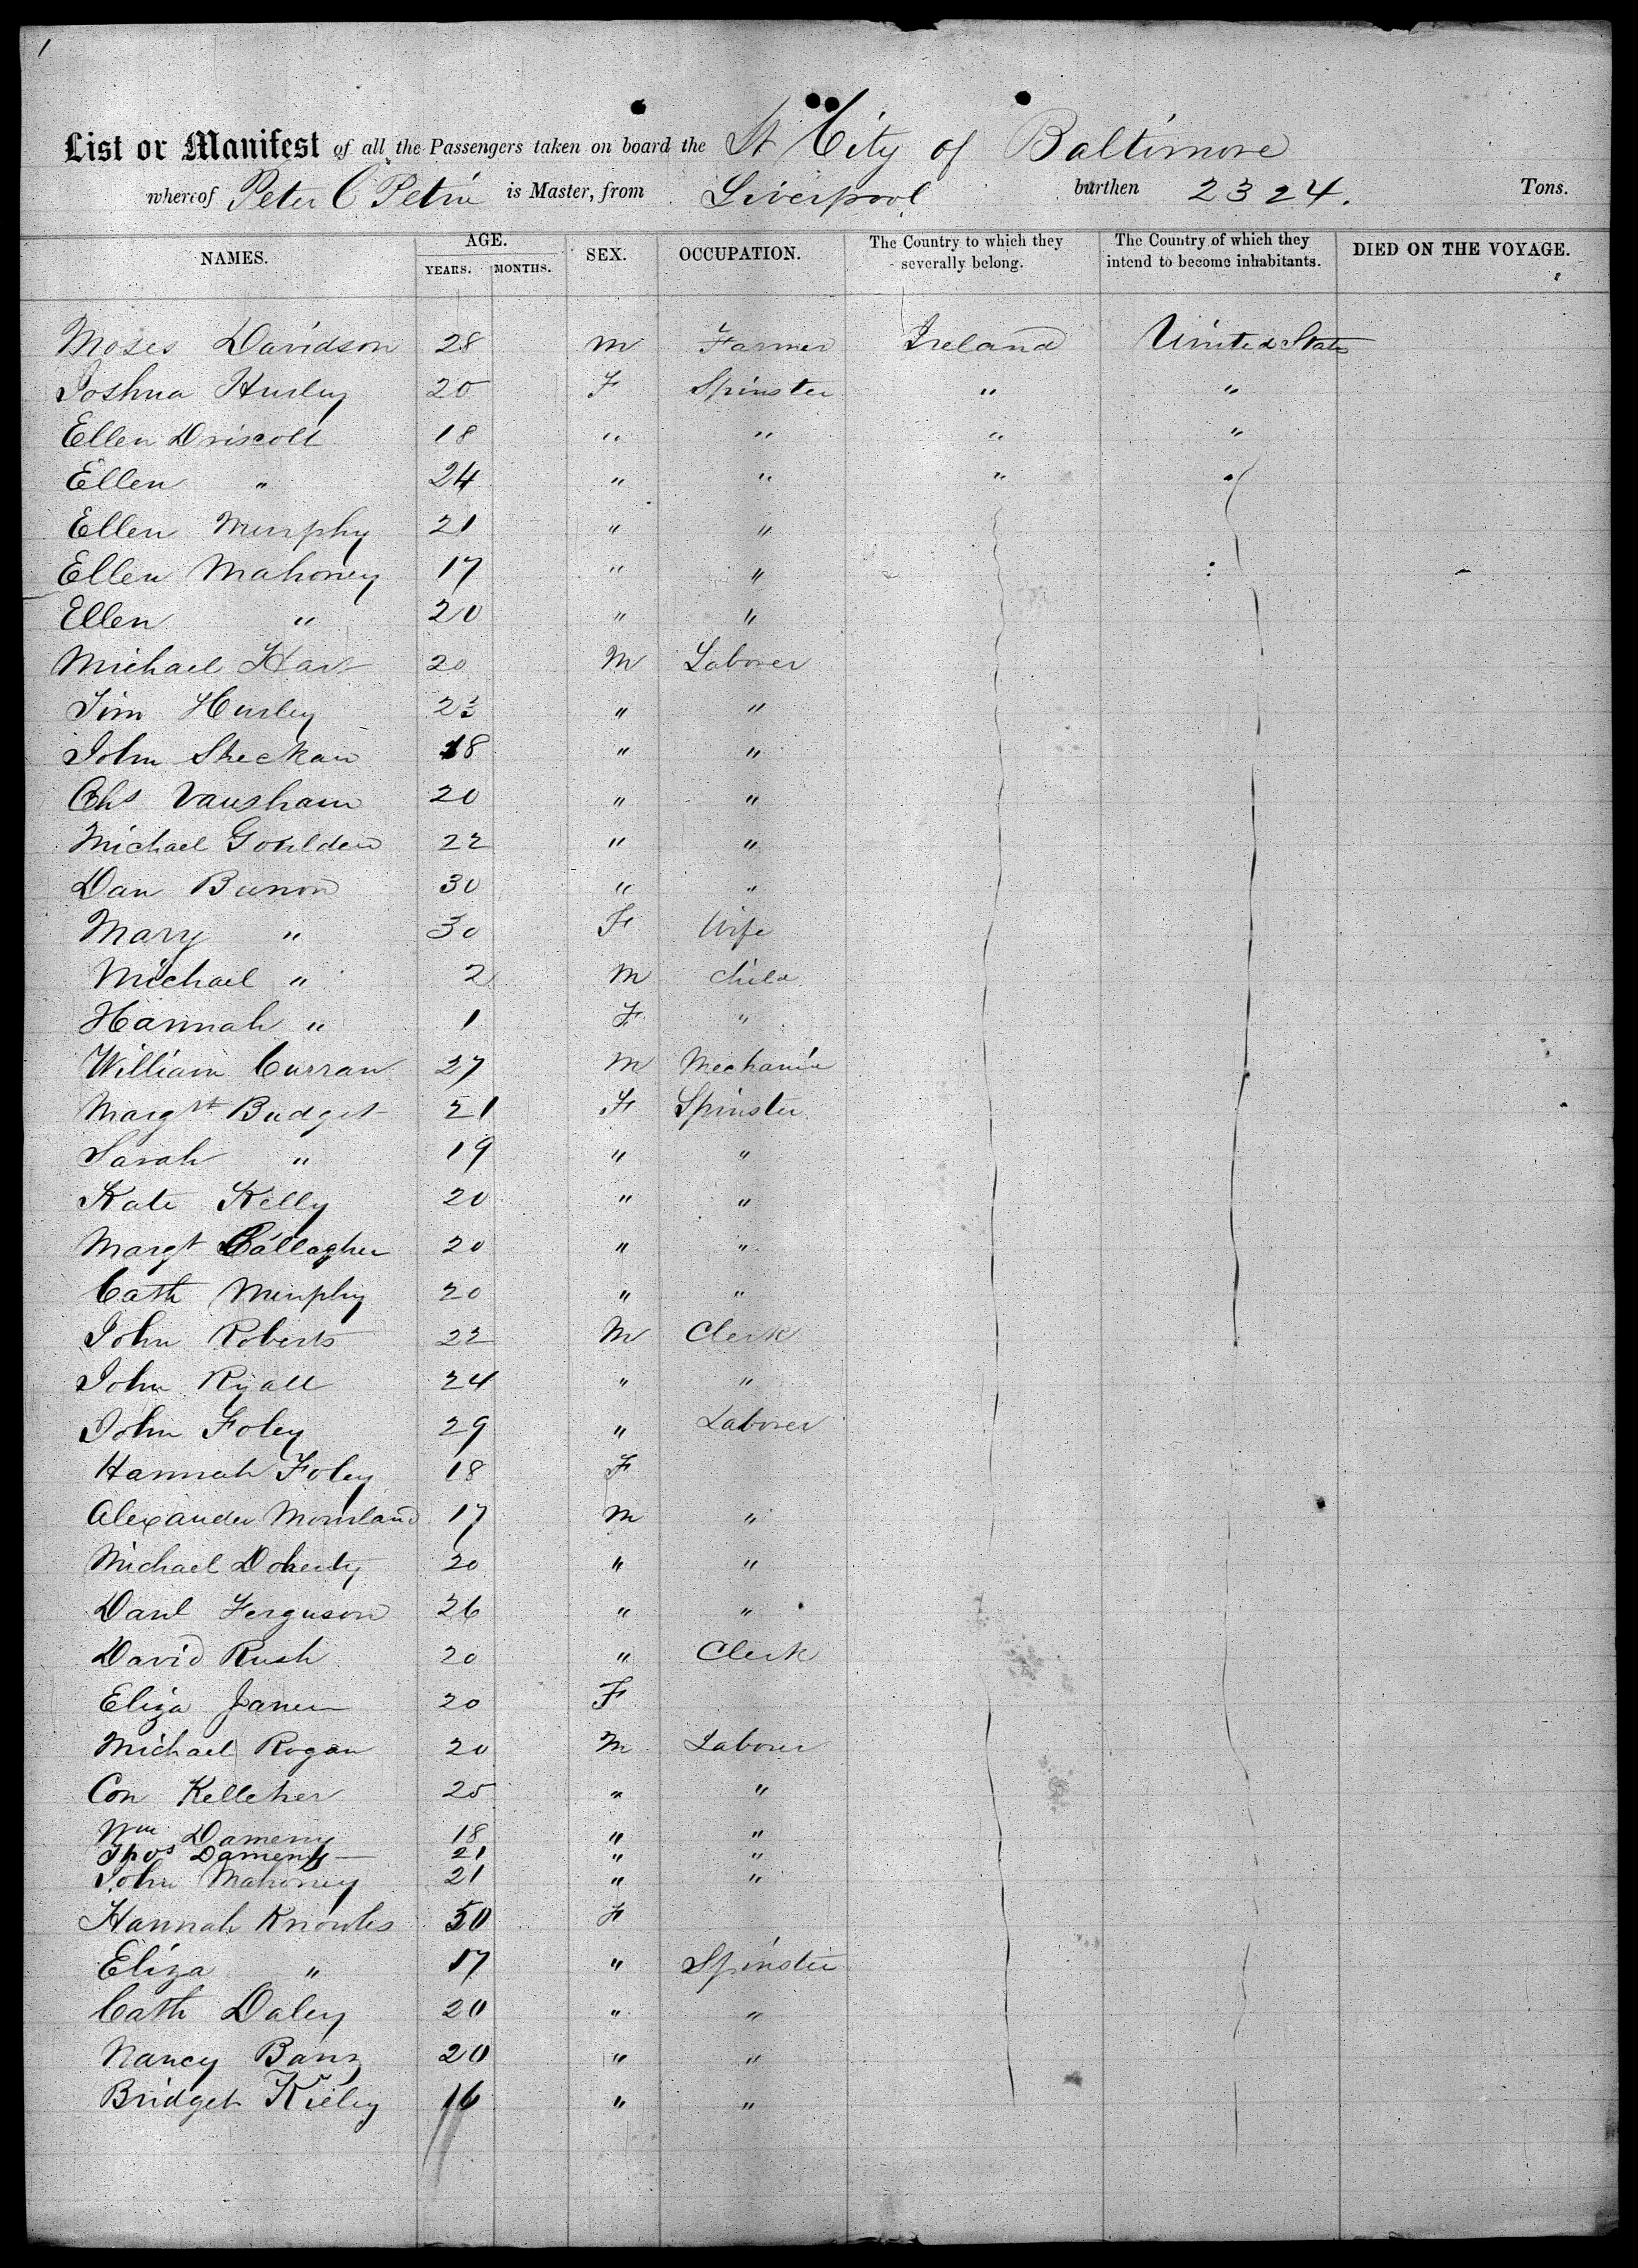 1
List or Manifest of all the Passengers taken on board the St City of Baltimore
whereof Peter C Petrie is Master, from Liverpool burthen 2324. Tons.
NAMES. AGE. YEARS. MONTHS. SEX. OCCUPATION. The Country to which they severally belong. The Country of which they intend to become inhabitants. DIED ON THE VOYAGE.
Moses Davidson 28 M Farmer Ireland United States
Joshua Hurley 20 F Spinster " "
Ellen Driscoll 18 " " " "
Ellen " 24 " " " "
Ellen Murphy 21 " "
Ellen Mahoney 17 " "
Ellen " 20 " "
Michael Hart 20 M Laborer
Tim Hurley 23 " "
John Sheekan 18 " "
Chs Vausham 20 " "
Michael Goulden 22 " "
Dan Bunon 30 " "
Mary " 30 F Wife
Michael " 2 M Child
Hannah " 1 F "
William Curran 27 M Mechanic
Margtt Budget 21 F Spinster
Sarah " 19 " "
Kate Kelly 20 " "
Margt Gallagher 20 " "
Cath Murphy 20 " "
John Roberts 22 M Clerk
John Ryall 24 " "
John Foley 29 " Laborer
Hannah Foley 18 F
Alexander Mourland 17 M "
Michael Doherty 20 " "
Danl Ferguson 26 " "
David Rush 20 " Clerk
Eliza 20 F
Michael Rogan 20 M Laborer
Con Kelleher 25 " "
Wm Dameny 18 " "
Thos Dameny 21 " "
John Mahoney 21 " "
Hannah Knowles 50 F
Eliza " 17 " Spinster
Cath Daley 20 " "
Nancy 20 " "
Bridget Kieley 16 " "